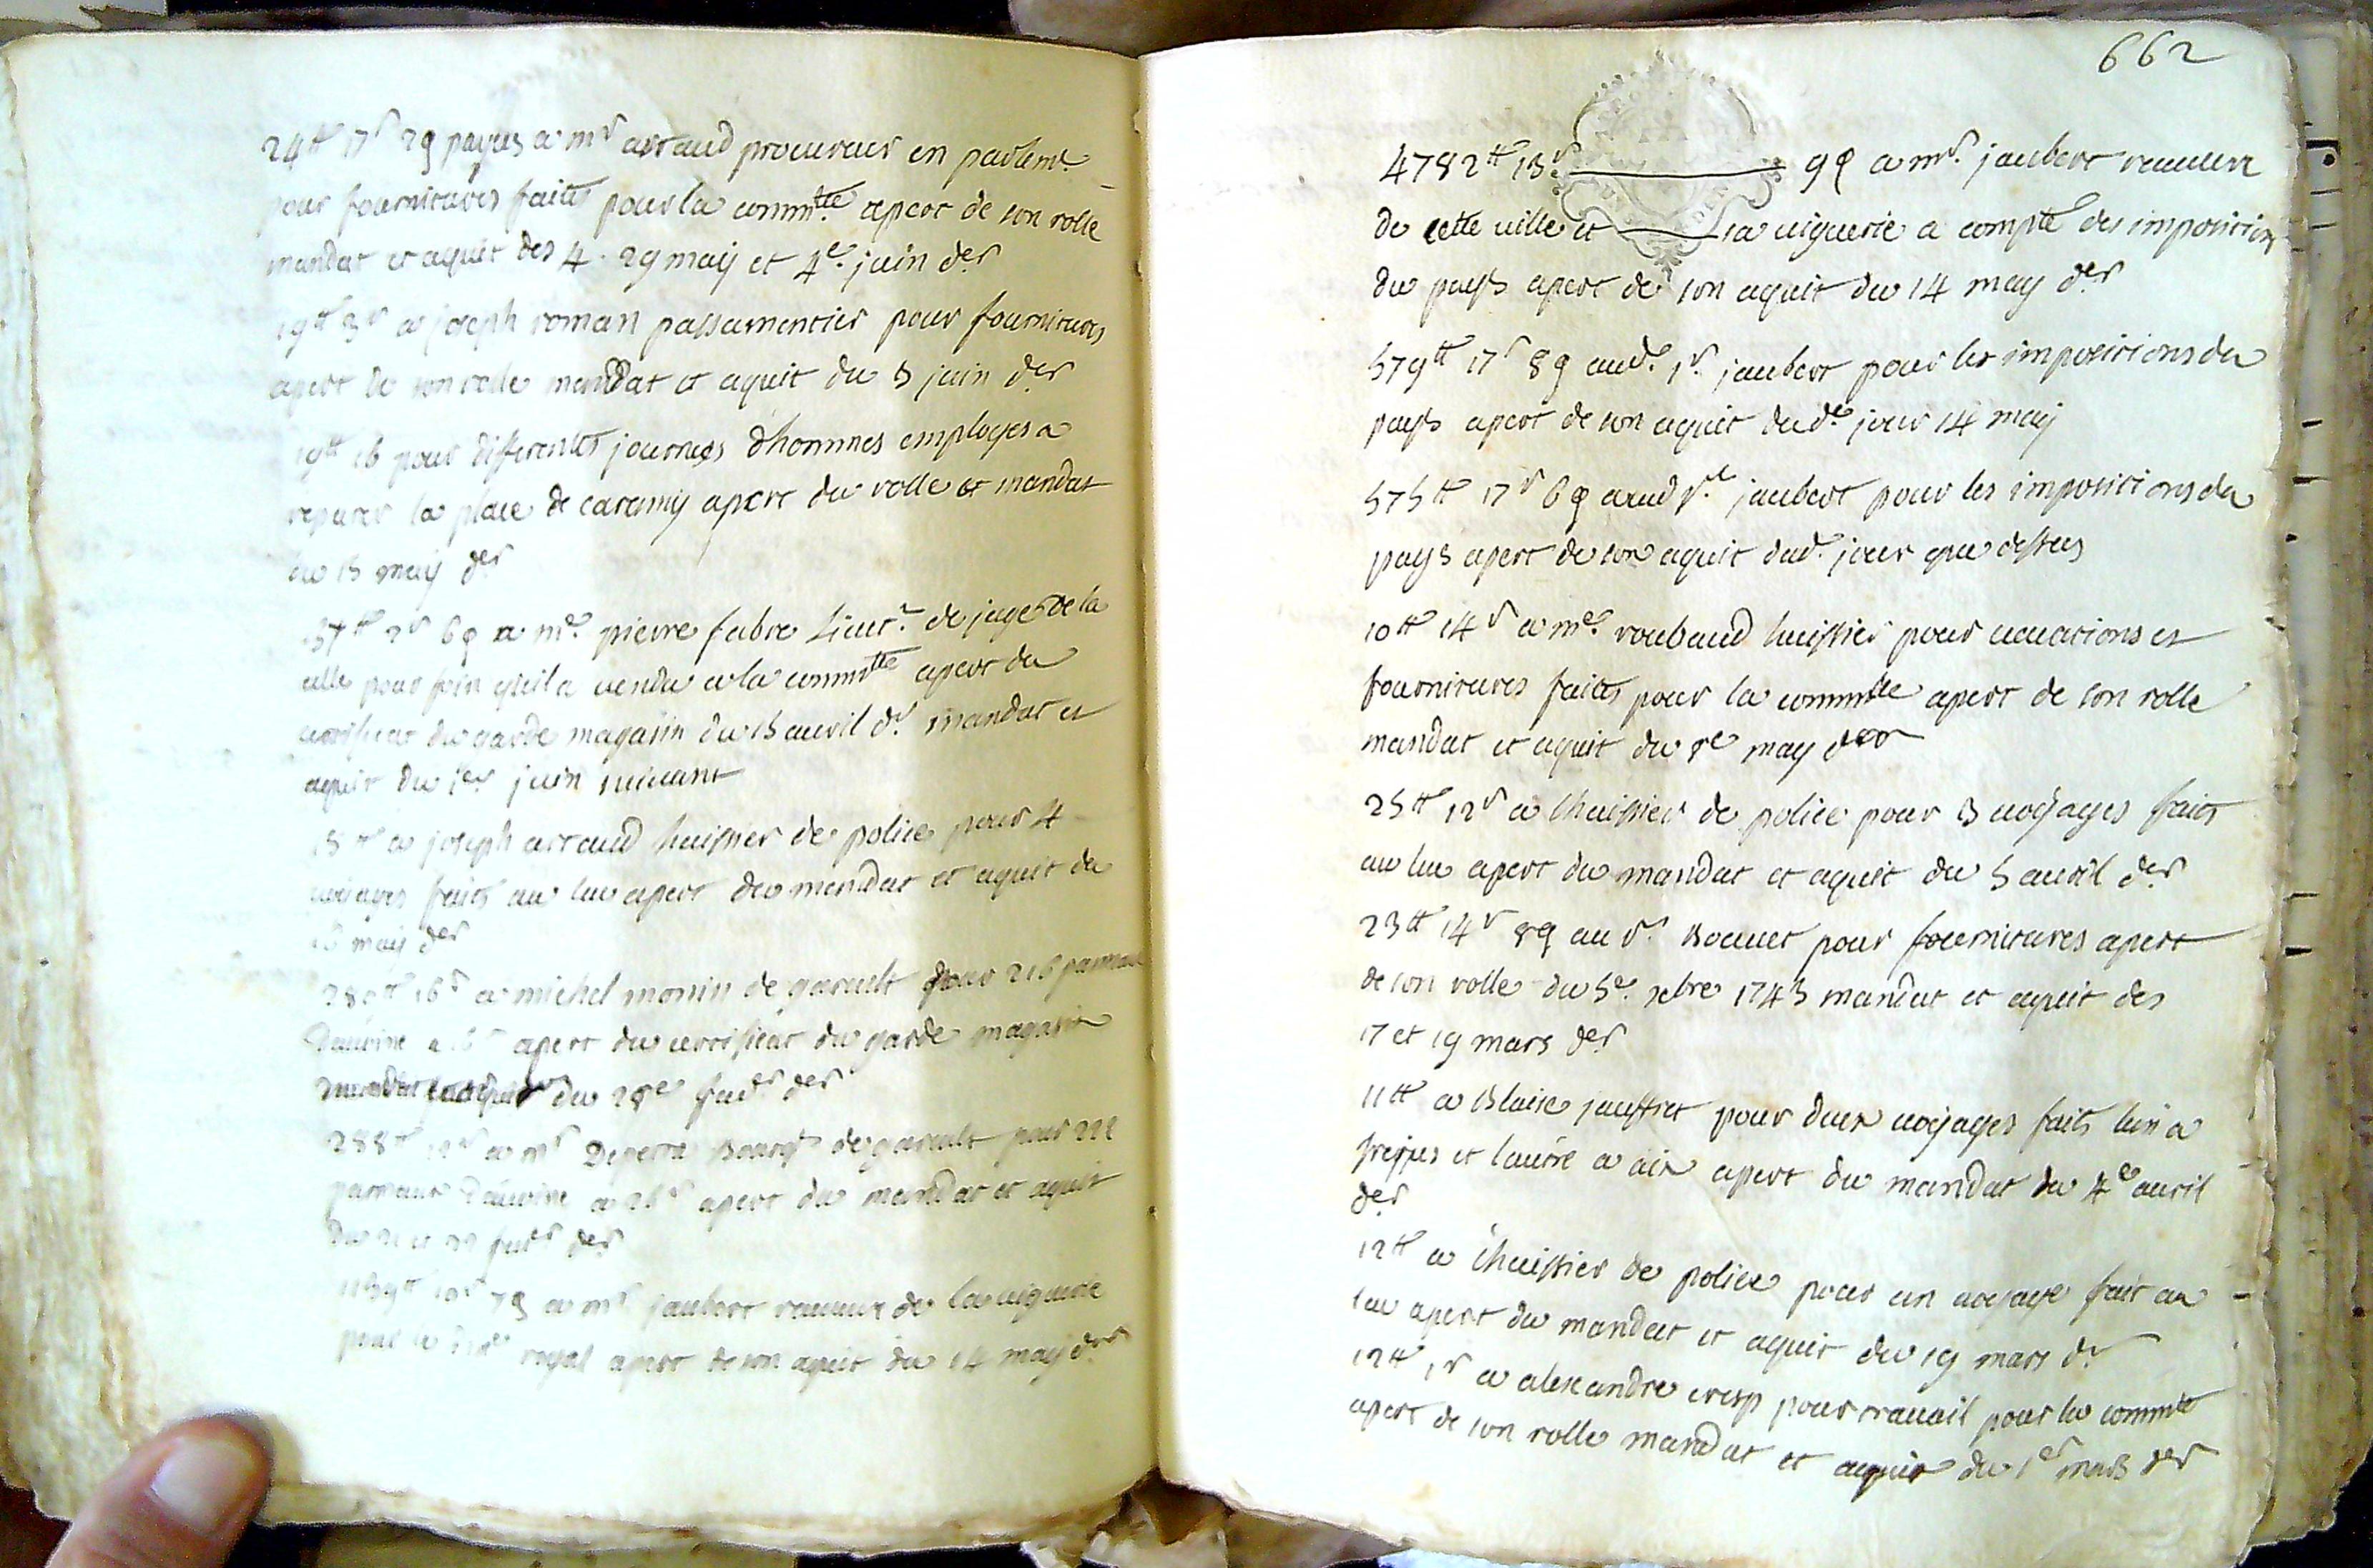 24tt 17s 29 payés a mr artaud procureur en parlemt
pour fournitures faites pour la commtte apert de son rolle
mandat et aquit des 4. 29 may et 4e. juin der
19tt 3s a joseph roman passamentier pour fournitures
apert de son rolle mandat et aquit du 3 juin der
19tt 16 pour differentes journees d'hommes employes a
reparer la place de caramy apert du rolle et mandat
du 13 may der
37tt 2s 6d a me. pierre fabre Lieut. de juge de la
ville pour foin qu'il a vendu a la commtte apert du
certificat du garde magasin du 13 avril dr. mandat et
aquit du 1er juin suivant
a joseph artaud huissier de police pour 4
voyages faits au luc apert du mandat et aquit du
may der
16s a michel monin de gareult pour 216 panneaux
d'avoine a apert du certificat du garde magasin
mandat et aquit du 28e der
288tt a mr de gareult pour
panneaux d'avoine a 26s apert du mandat et aquit
du 21 et der
10s 7d a mr jaubert receveur de la viguerie
pour le royal apert de son aquit du 14 may der
662
4782tt 13s. 9d a mr. jaubert receveur
de cette ville et sa viguerie a compte des impositions
du pays apert de son aquit du 14 may der
579tt 17s 8d aud. sr. jaubert pour les impositions du
pays apert de son aquit dud. jour 14 may
575tt 17s 6d aud sr. jaubert pour les impositions du
pays apert de son aquit dud. jour que dessus
10tt 14s a me. roubaud huissier pour vacations et
fournitures faites pour la commtte apert de son rolle
mandat et aquit du 8e may der
25tt 12s a l'huissier de police pour 3 voyages faits
au luc apert du mandat et aquit du 5 avril der
23tt 14s 8d au sr. Bouvet pour fournitures apert
de son rolle du 5e. xbre 1743 mandat et aquit des
17 et 19 mars der
11tt a Blaise jauffret pour deux voyages faits l'un a
frejus et l'autre a aix apert du mandat du 4e avril
der
12tt a l'huissier de police pour un voyage fait au
luc apert du mandat et aquit du 19 mars dr
12tt 1s a alexandre cresp pour travail pour la commtte
apert de son rolle mandat et aquit du 1er mars der